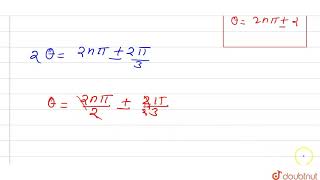 θ = 2nπ ± 2
2θ = 2nπ ± 2π/3
θ = 2nπ/2 ± 2π/2·3
doubtnut